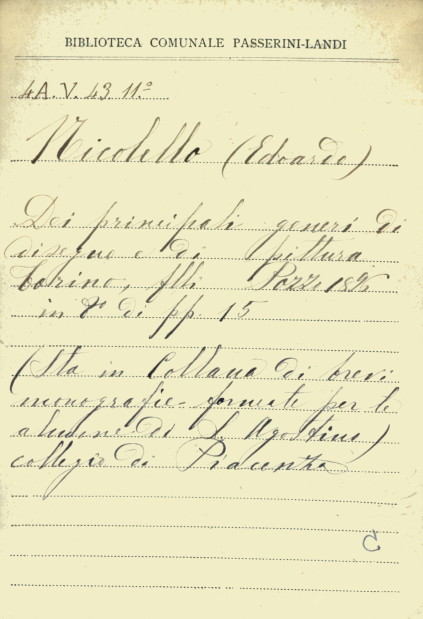 BIBLIOTECA COMUNALE PASSERINI-LANDI
4A.V. 43 11.°
Nicolello (Edoardo)
Dei principali generi di
disegno e di pittura
Torino, flli Pozzo
in 8° di pp. 15
(Sta in Collana di brevi
monografie - formate per le
alunne di S. Agostino)
collegio di Piacenza
C